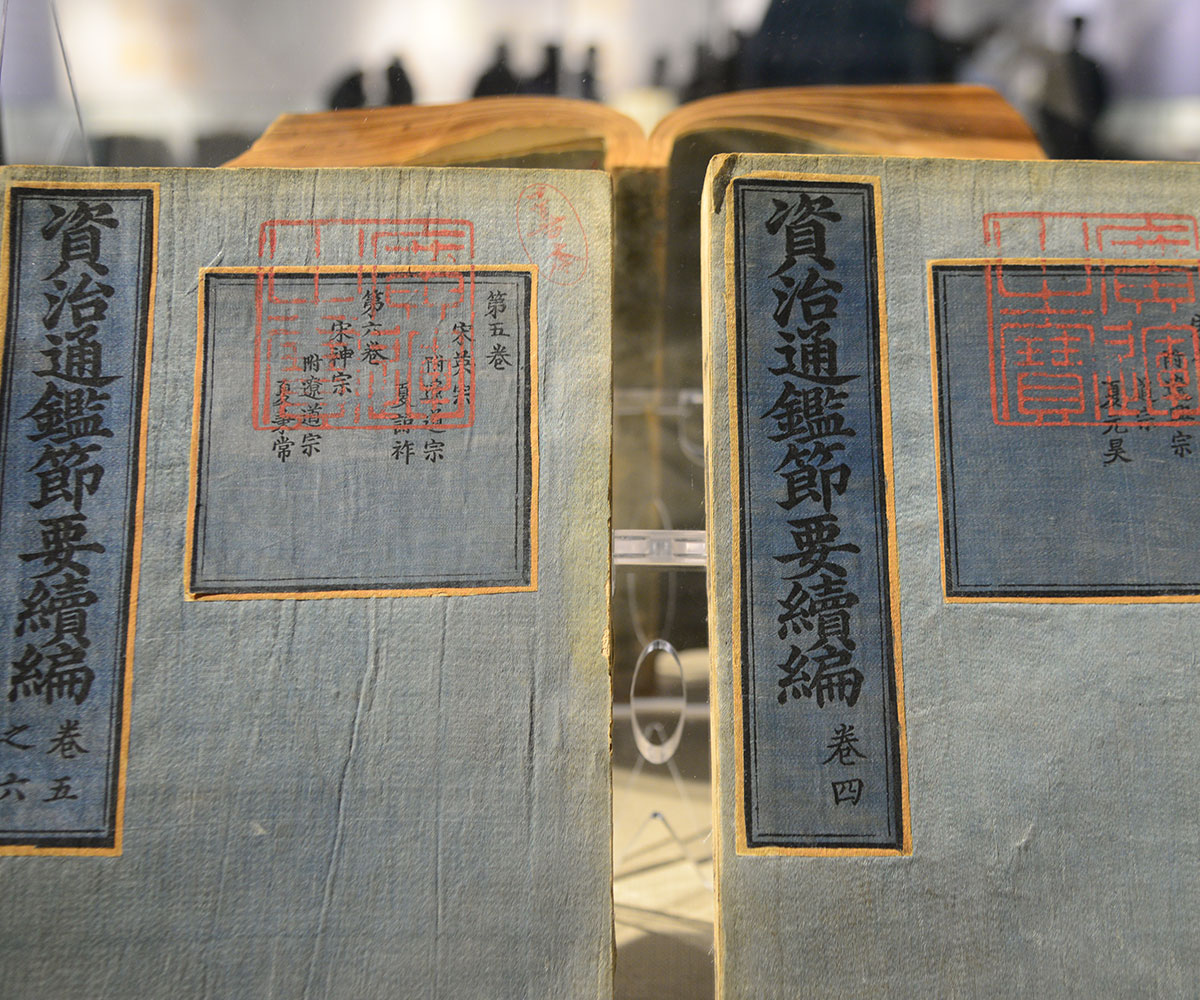 資治通鑑節要續編
卷四
夏元昊
廣運
之寶
資治通鑑節要續編
卷五
之六
第五卷
宋英宗
附遼道宗
夏諒祚
第六卷
宋神宗
附遼道宗
夏秉常